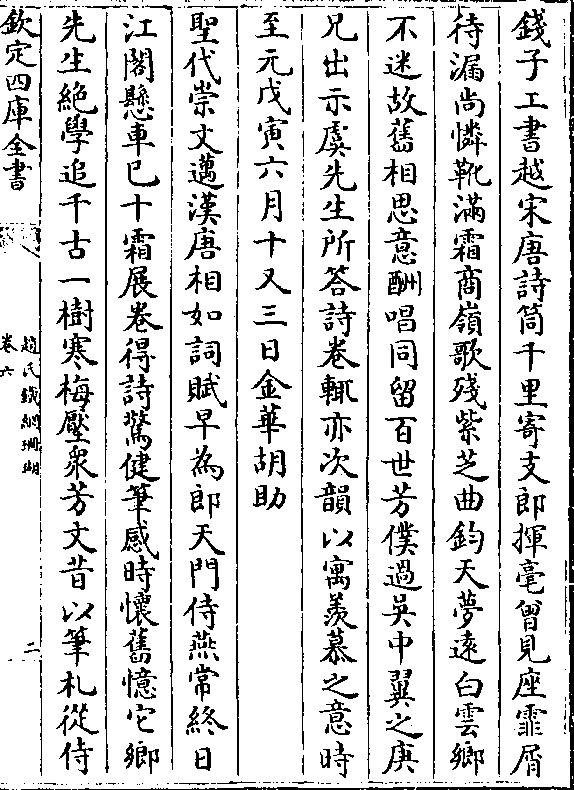 錢子工書越宋唐詩筒千里寄支郎揮毫曾見座霏屑
待漏尚憐靴滿霜商嶺歌殘紫芝曲鈞天夢遠白雲鄉
不迷故舊相思意酬唱同留百世芳僕過吳中翼之庚
兄出示虞先生所答詩卷輒亦次韻以寓羨慕之意時
至元戊寅六月十又三日金華胡助
聖代崇文邁漢唐相如詞賦早為郎天門侍燕常終日
江閣懸車已十霜展卷得詩驚健筆感時懷舊憶它鄉
先生絶學追千古一樹寒梅壓衆芳文昔以筆札從侍
欽定四庫全書
趙氏鐵網珊瑚
卷六
二